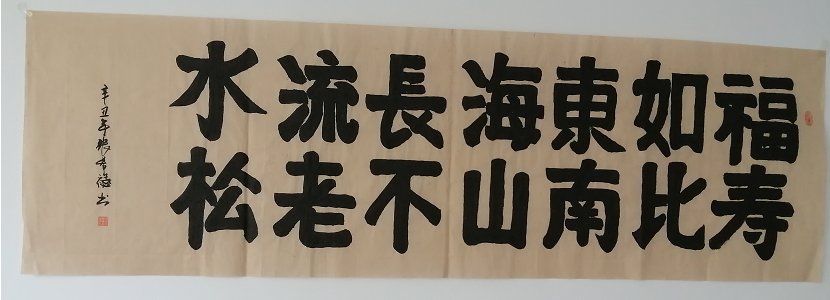 福如東海長流水
寿比南山不老松
辛丑年
书